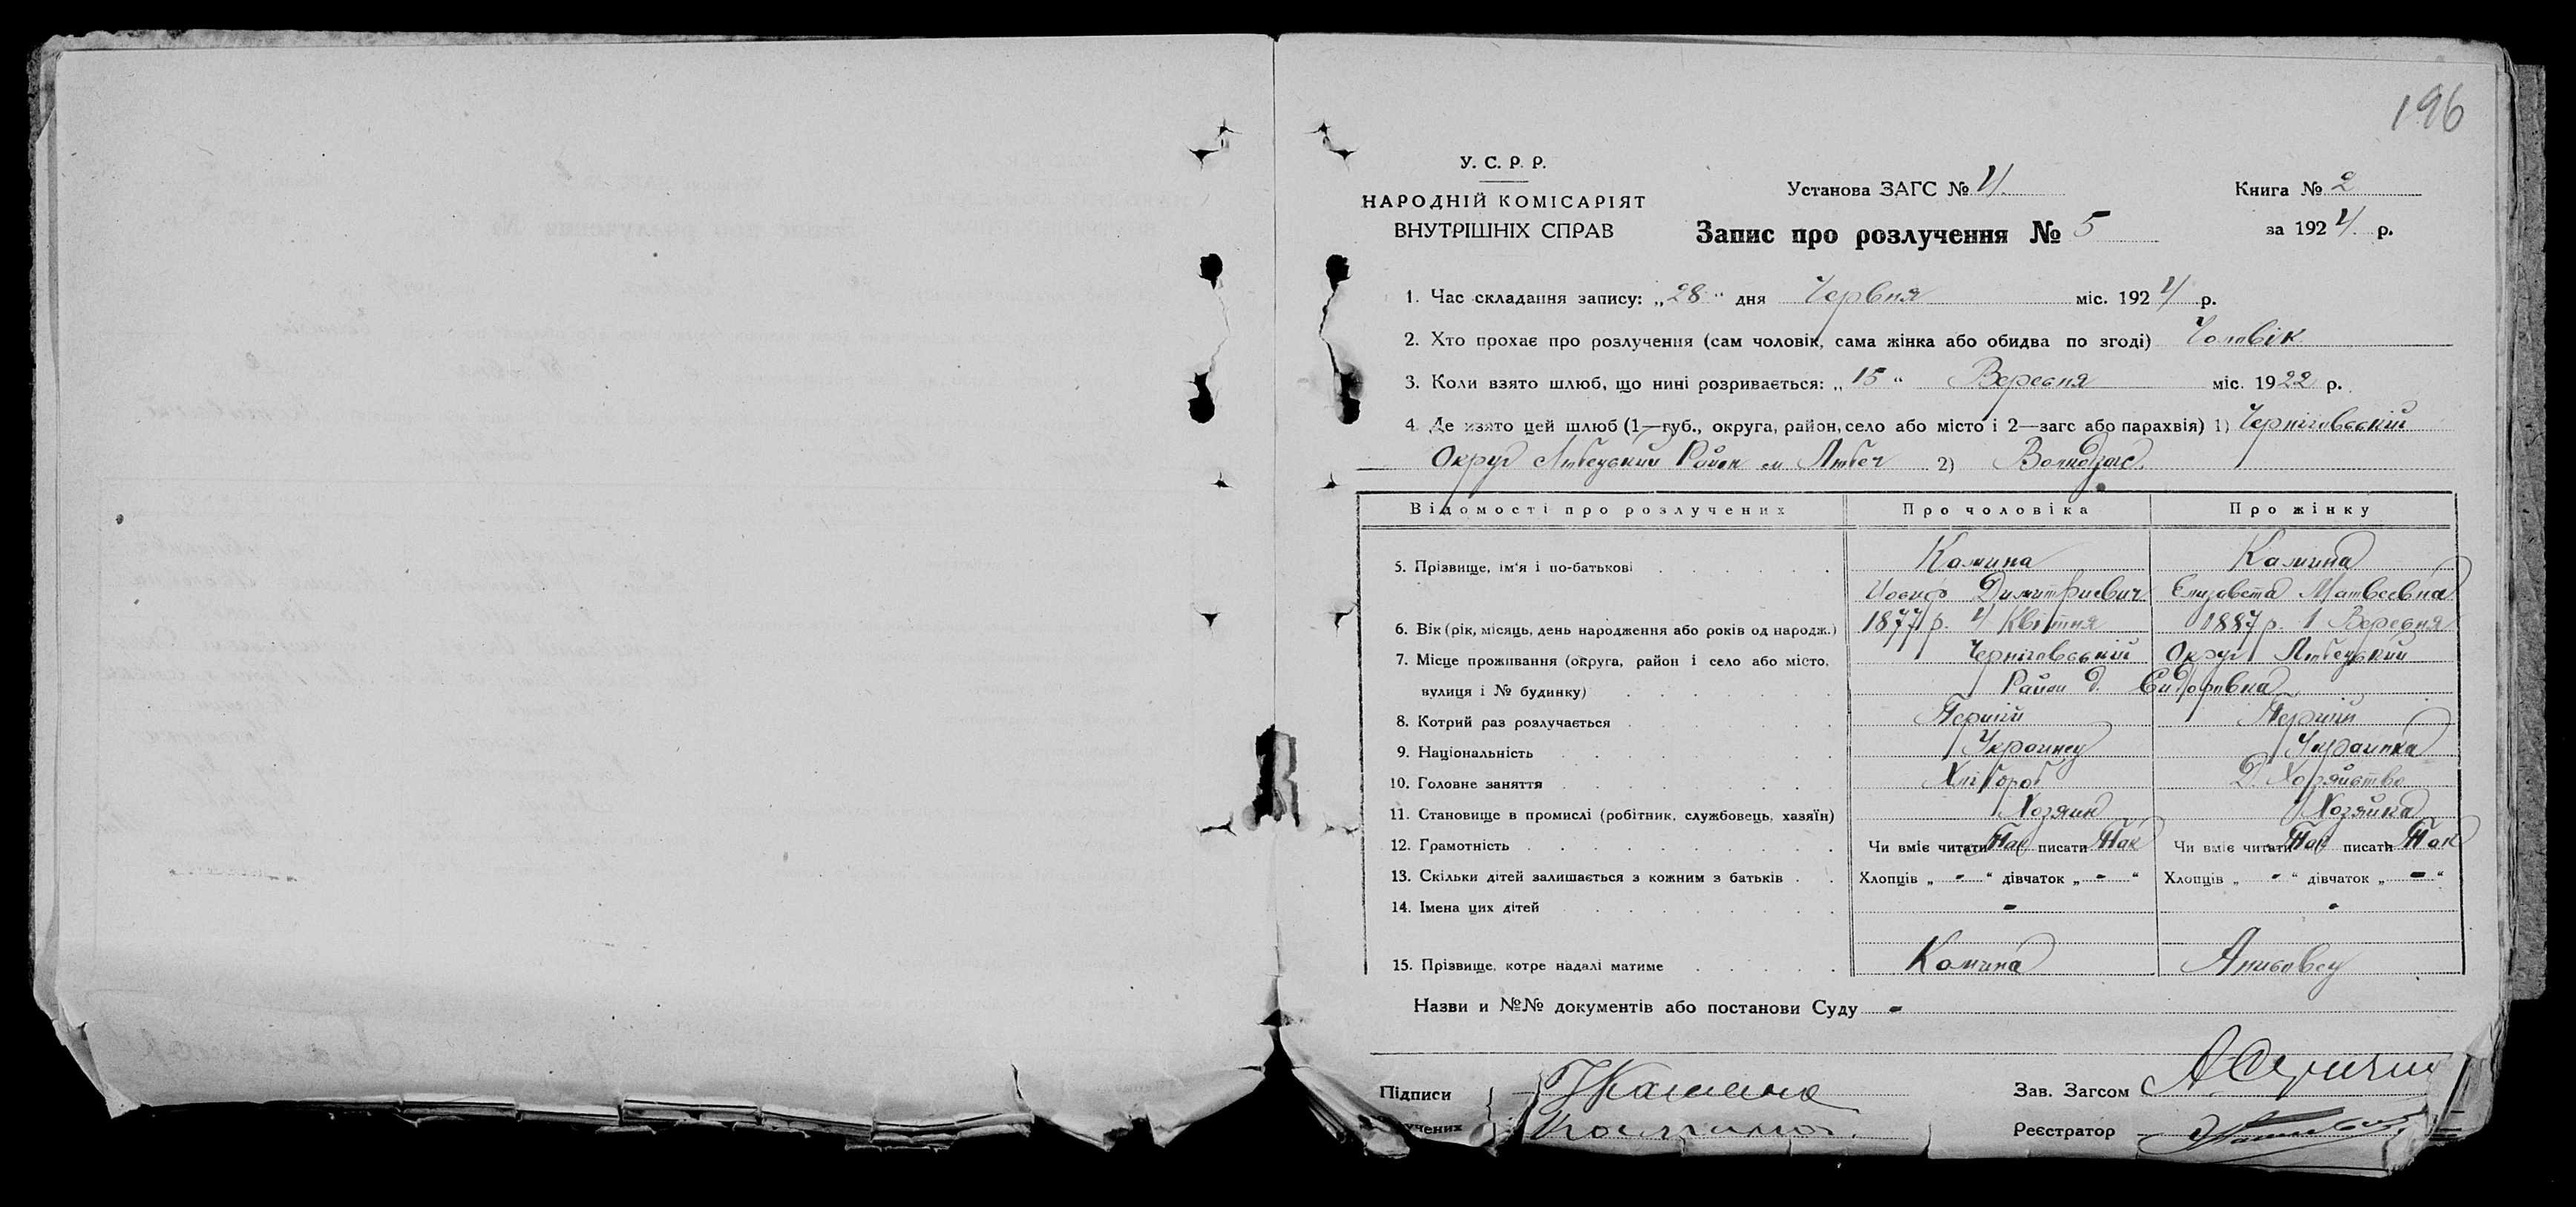 196
У. С. Р. Р.
НАРОДНІЙ КОМІСАРІЯТ
ВНУТРІШНІХ СПРАВ
Установа ЗАГС № 4
Книга № 2
Запис про розлучення № 5
за 1924 р.
1. Час складання запису: „28“ дня Червня міс. 1924 р.
2. Хто прохає про розлучення (сам чоловік, сама жінка або обидва по згоді) Чоловік
3. Коли взято шлюб, що нині розривається: „15“ Вересня міс. 1922 р.
4. Де взято цей шлюб (1—губ., округа, район, село або місто і 2—загс або парахвія) 1) Черніговський
Округ Любецький Район м Любеч 2) Волподзагс
Відомості про розлучених Про чоловіка Про жінку
5. Прізвище, ім'я і по-батькові Комина Камина
Иосиф Димитриевич Елизовета Матвеевна
6. Вік (рік, місяць, день народження або років од народж.) 1877 р. 4 Квітня 1887 р. 1 Вересня
7. Місце проживання (округа, район і село або місто, Черніговський Округ Любецький
вулиця і № будинку) Район д. Сидоровка
8. Котрий раз розлучається Перший Перший
9. Національність Украинец Украинка
10. Головне заняття Хлібороб Д. Хозяйство
11. Становище в промислі (робітник, службовець, хазяїн) Хозяин Хозяйка
12. Грамотність Чи вміє читати Так писати Так Чи вміє читати Так писати Так
13. Скільки дітей залишається з кожним з батьків Хлопців „ - “ дівчаток „ - “ Хлопців „ - “ дівчаток „ - “
14. Імена цих дітей - -
15. Прізвище, котре надалі матиме Комина
Назви и №№ документів або постанови Суду -
Підписи Камина Зав. Загсом
учених Реєстратор